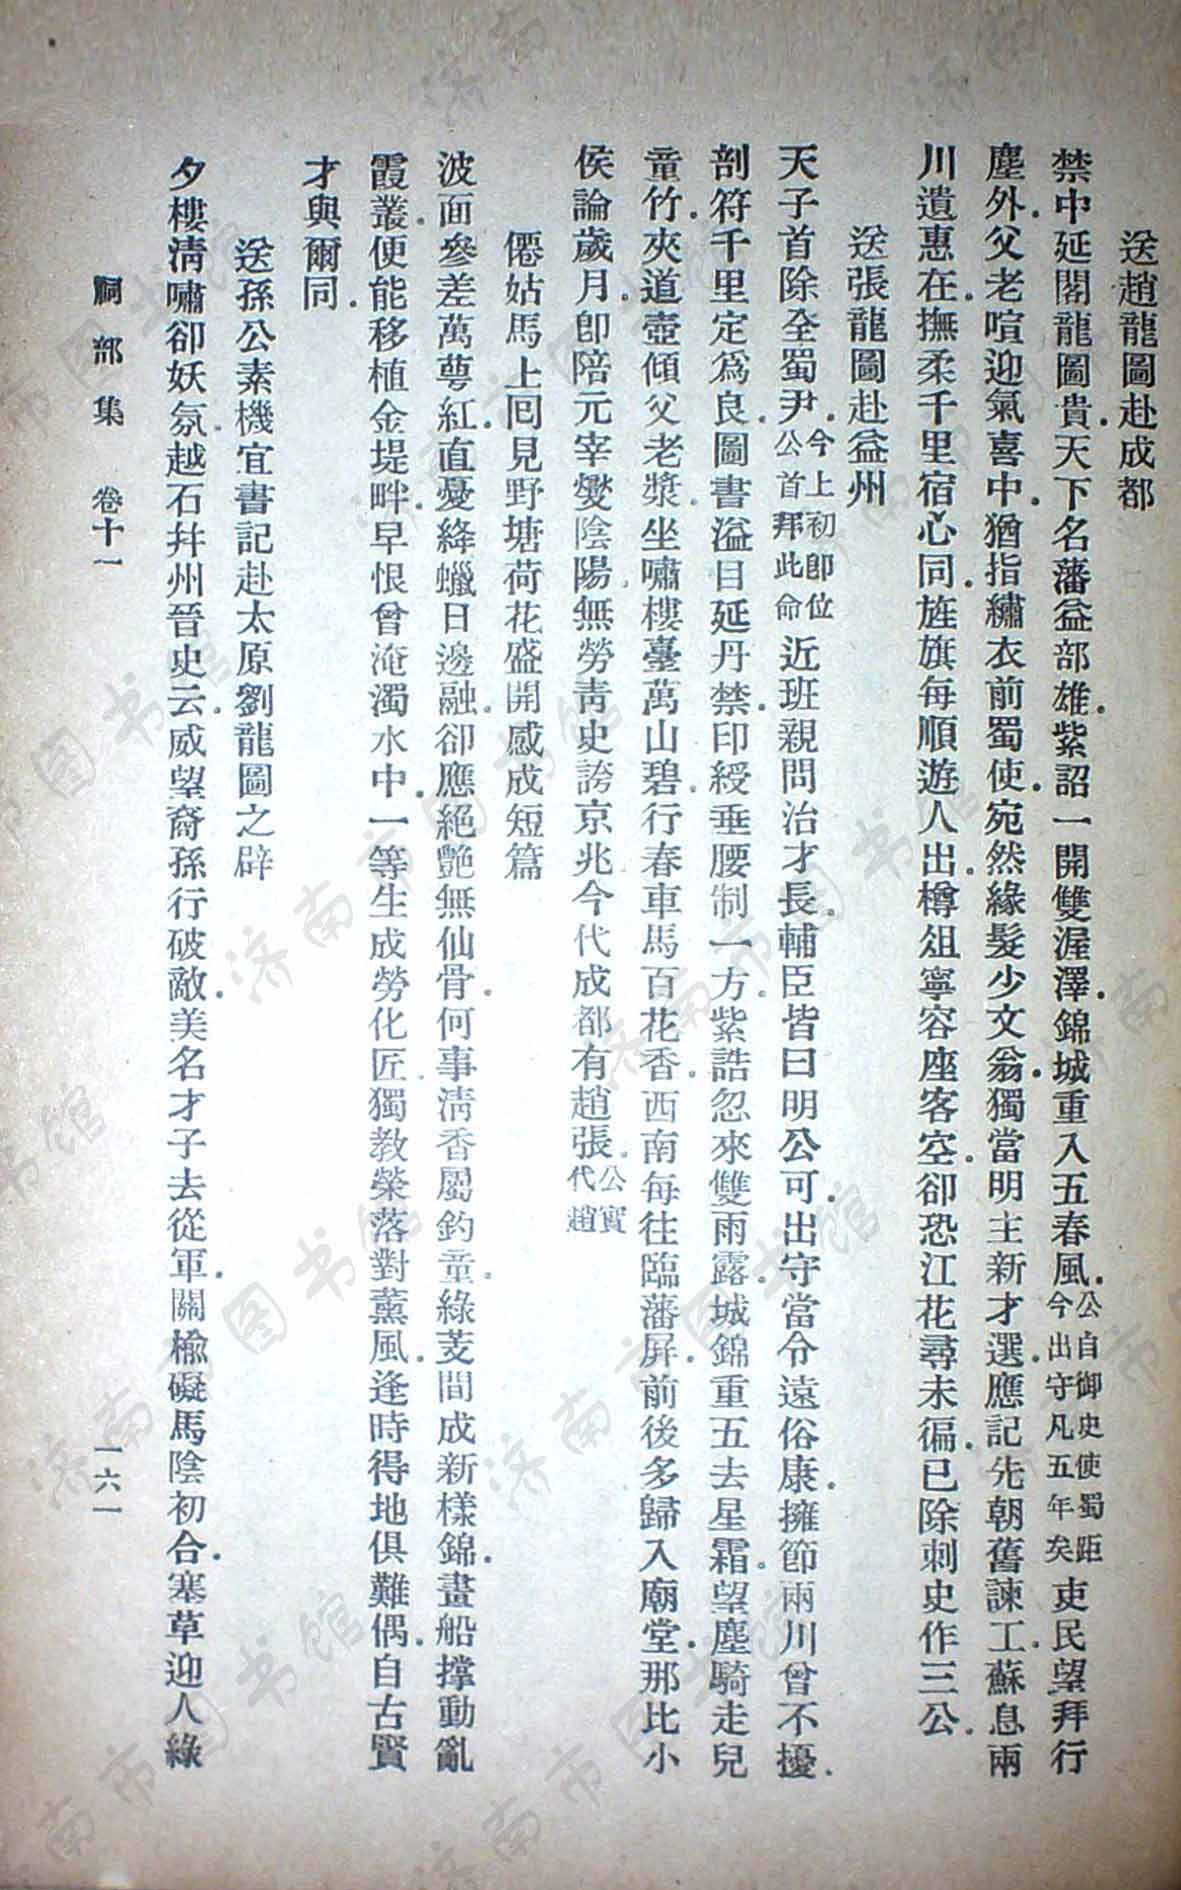 送趙龍圖赴成都
禁中延閣龍圖貴．天下名藩益部雄．紫詔一開雙渥澤．錦城重入五春風．公自御史使蜀距今出守凡五年矣吏民望拜行
塵外．父老喧迎氣喜中．猶指繡衣前蜀使．宛然緣髮少文翁．獨當明主新才選．應記先朝舊諫工．蘇息兩
川遺惠在．撫柔千里宿心同．旌旗每順遊人出．樽俎寧容座客空．卻恐江花尋未徧．已除刺史作三公．
送張龍圖赴益州
天子首除全蜀尹．今上初卽位公首拜此命近班親問治才長．輔臣皆曰明公可．出守當令遠俗康．擁節兩川曾不擾．
剖符千里定爲良．圖書溢目延丹禁．印綬垂腰制一方．紫誥忽來雙雨露．城錦重五去星霜．望塵騎走兒
童竹．夾道壺傾父老漿．坐嘯樓臺萬山碧．行春車馬百花香．西南每往臨藩屏．前後多歸入廟堂．那比小
侯論歲月．卽陪元宰燮陰陽．無勞靑史誇京兆．今代成都有趙張．公實代趙
僊姑馬上囘見野塘荷花盛開感成短篇
波面參差萬萼紅．直憂絳蠟日邊融．卻應絕艷無仙骨．何事淸香屬釣童．綠芰間成新樣錦．畫船撐動亂
霞叢．便能移植金堤畔．早恨曾淹濁水中．一等生成勞化匠．獨教榮落對薰風．逢時得地俱難偶．自古賢
才與爾同．
送孫公素機宜書記赴太原劉龍圖之辟
夕樓淸嘯卻妖氛．越石幷州晉史云．威望裔孫行破敵．美名才子去從軍．關楡礙馬陰初合．塞草迎人綠
祠部集　卷十一　一六一